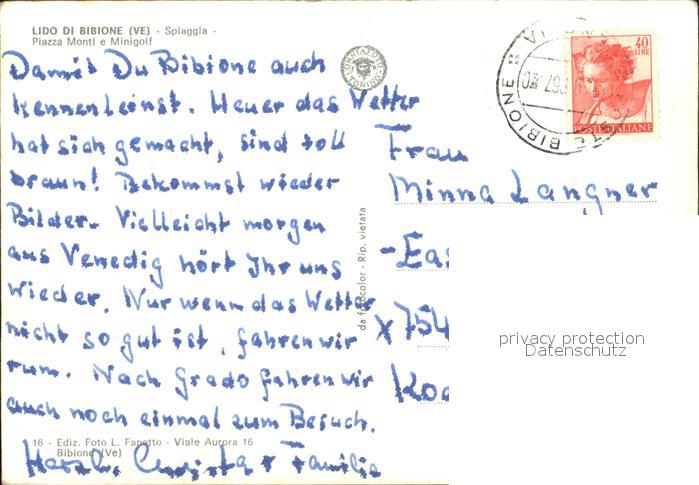 LIDO DI BIBIONE (VE) - Spiaggia -
Piazza Monti e Minigolf
Damit Du Bibione auch
kennenlernst. Heuer das Wetter
hat sich gemacht, sind toll
braun! Bekommst wieder
Bilder. Vielleicht morgen
aus Venedig hört Ihr uns
wieder. Nur wenn das Wetter
nicht so gut ist, fahren wir
rum. Nach Grado fahren wir
auch noch einmal zum Besuch.
16 - Ediz. Foto L. Fapetto - Viale Aurora 16
Bibione (Ve)
Herzl. Christa + Familie
da fotocolor - Rip. vietata
BIBIONE
40
LIRE
POSTE ITALIANE
Frau
Minna Langner
x 754
privacy protection
Datenschutz